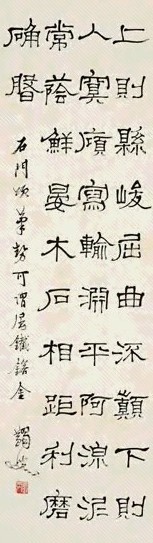 上則縣峻屈曲流顛下則
入冥廎寫輸淵平阿淖泥
常蔭鮮晏木石相距利磨
确
石門頌筆勢可謂屈鐵錯金 蠲叟